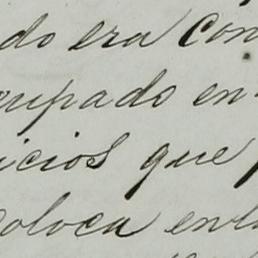 do era con
upado en
icios que
oloca en